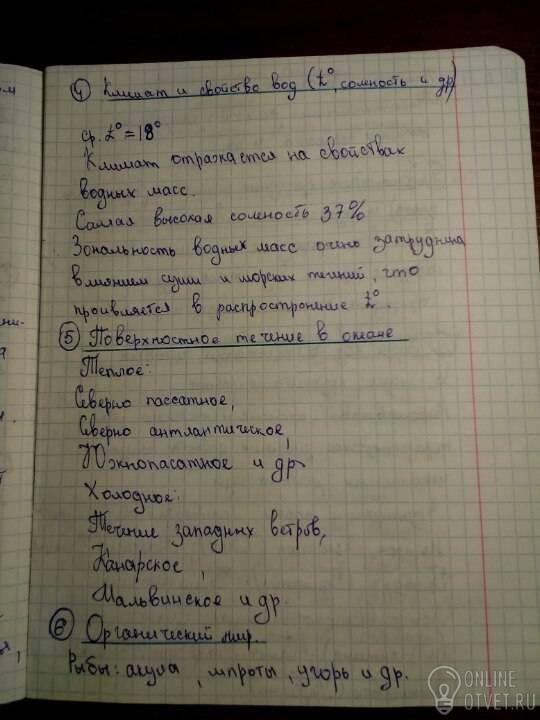 ④ Климат и свойство вод (t°, соленость и др)
ср. t° = 18°
Климат отражается на свойствах
водных масс.
Самая высокая соленость 37%
Зональность водных масс очень затруднина
влиянием суши и морских течений, что
проивляется в распростронение t°.
⑤ Поверхностное течение в океане
Теплое:
Северно пассатное,
Северно антлантическое,
Южнопасатное и др
Холодное:
Течение западных ветров,
Канарское,
Мальвинское и др.
⑥ Органический мир.
Рыбы: акула, шпроты, угорь и др.
ONLINE
OTVET.RU